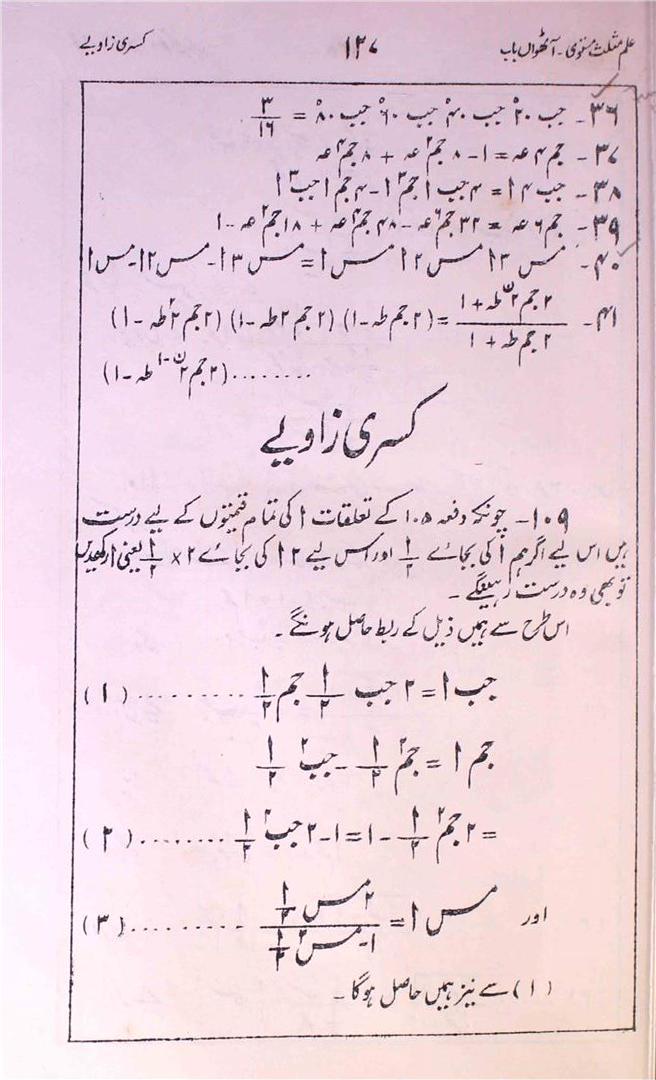 علم مثلث مستوی - آٹھواں باب ۱۲۷ کسری زاویے
۳۶- جب ۲۰° جب ۴۰° جب ۶۰° جب ۸۰° = ۳/۱۶
۳۷- جم ۴ عہ = ۱ - ۸ جم۲ عہ + ۸ جم۴ عہ
۳۸- جب ۴ ا = ۴ جب ا جم۳ ا - ۴ جم ا جب۳ ا
۳۹- جم ۶ عہ = ۳۲ جم۶ عہ - ۴۸ جم۴ عہ + ۱۸ جم۲ عہ - ۱
۴۰- مس ۳ ا مس ۲ ا مس ا = مس ۳ ا - مس ۲ ا - مس ا
۴۱- (۲ جم ۲^ن طہ + ۱)/(۲ جم طہ + ۱) = (۲ جم طہ - ۱) (۲ جم ۲ طہ - ۱) (۲ جم ۲^۲ طہ - ۱)
........(۲ جم ۲^(ن-۱) طہ - ۱)
کسری زاویے
۱۰۹- چونکہ دفعہ ۱۰۵ کے تعلقات ا کی تمام قیمتوں کے لیے درست
ہیں اس لیے اگر ہم ا کی بجائے ا/۲ اور اس لیے ۲ ا کی بجائے ۲ × ا/۲ یعنی ا رکھدیں
تو بھی وہ درست رہینگے -
اس طرح سے ہمیں ذیل کے ربط حاصل ہونگے -
جب ا = ۲ جب ا/۲ جم ا/۲ .......... (۱)
جم ا = جم۲ ا/۲ - جب۲ ا/۲
= ۲ جم۲ ا/۲ - ۱ = ۱ - ۲ جب۲ ا/۲ ........ (۲)
اور مس ا = (۲ مس ا/۲)/(۱ - مس۲ ا/۲) .......... (۳)
(۱) سے نیز ہمیں حاصل ہوگا -